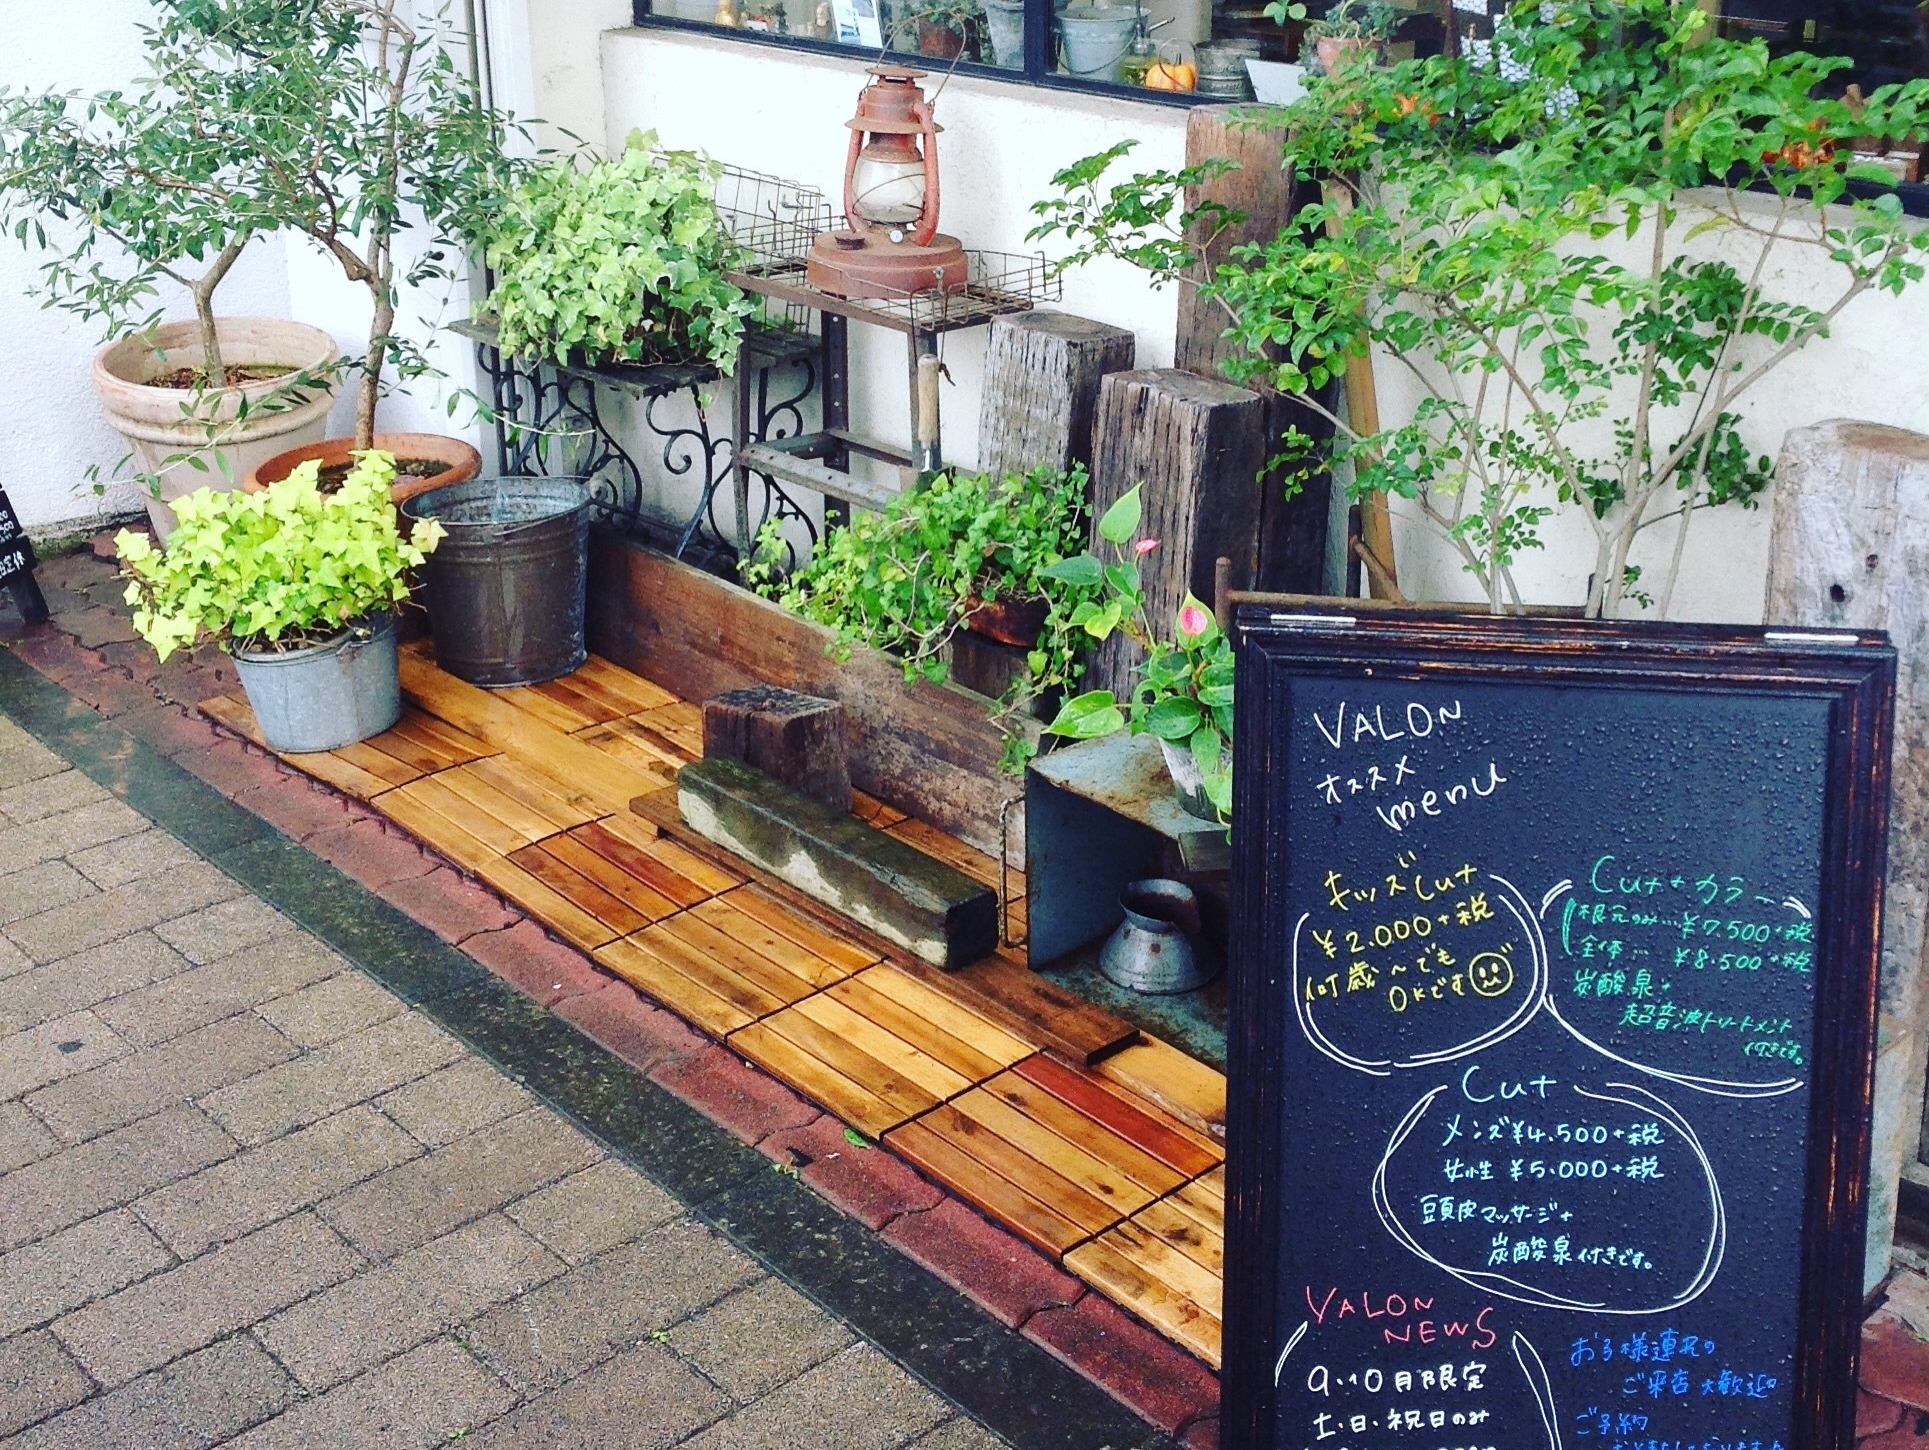 VALON
オススメ
menu
キッズCut
¥2.000+税
何歳〜でも
OKです
Cut+カラー
根元のみ…¥7.500+税
全体…¥8.500+税
炭酸泉+
超音波トリートメント
付きです。
Cut
メンズ¥4.500+税
女性¥5.000+税
頭皮マッサージ+
炭酸泉付きです。
VALON
NEWS
9.10月限定
土・日・祝日のみ
お子様連れの
ご来店大歓迎
ご予約